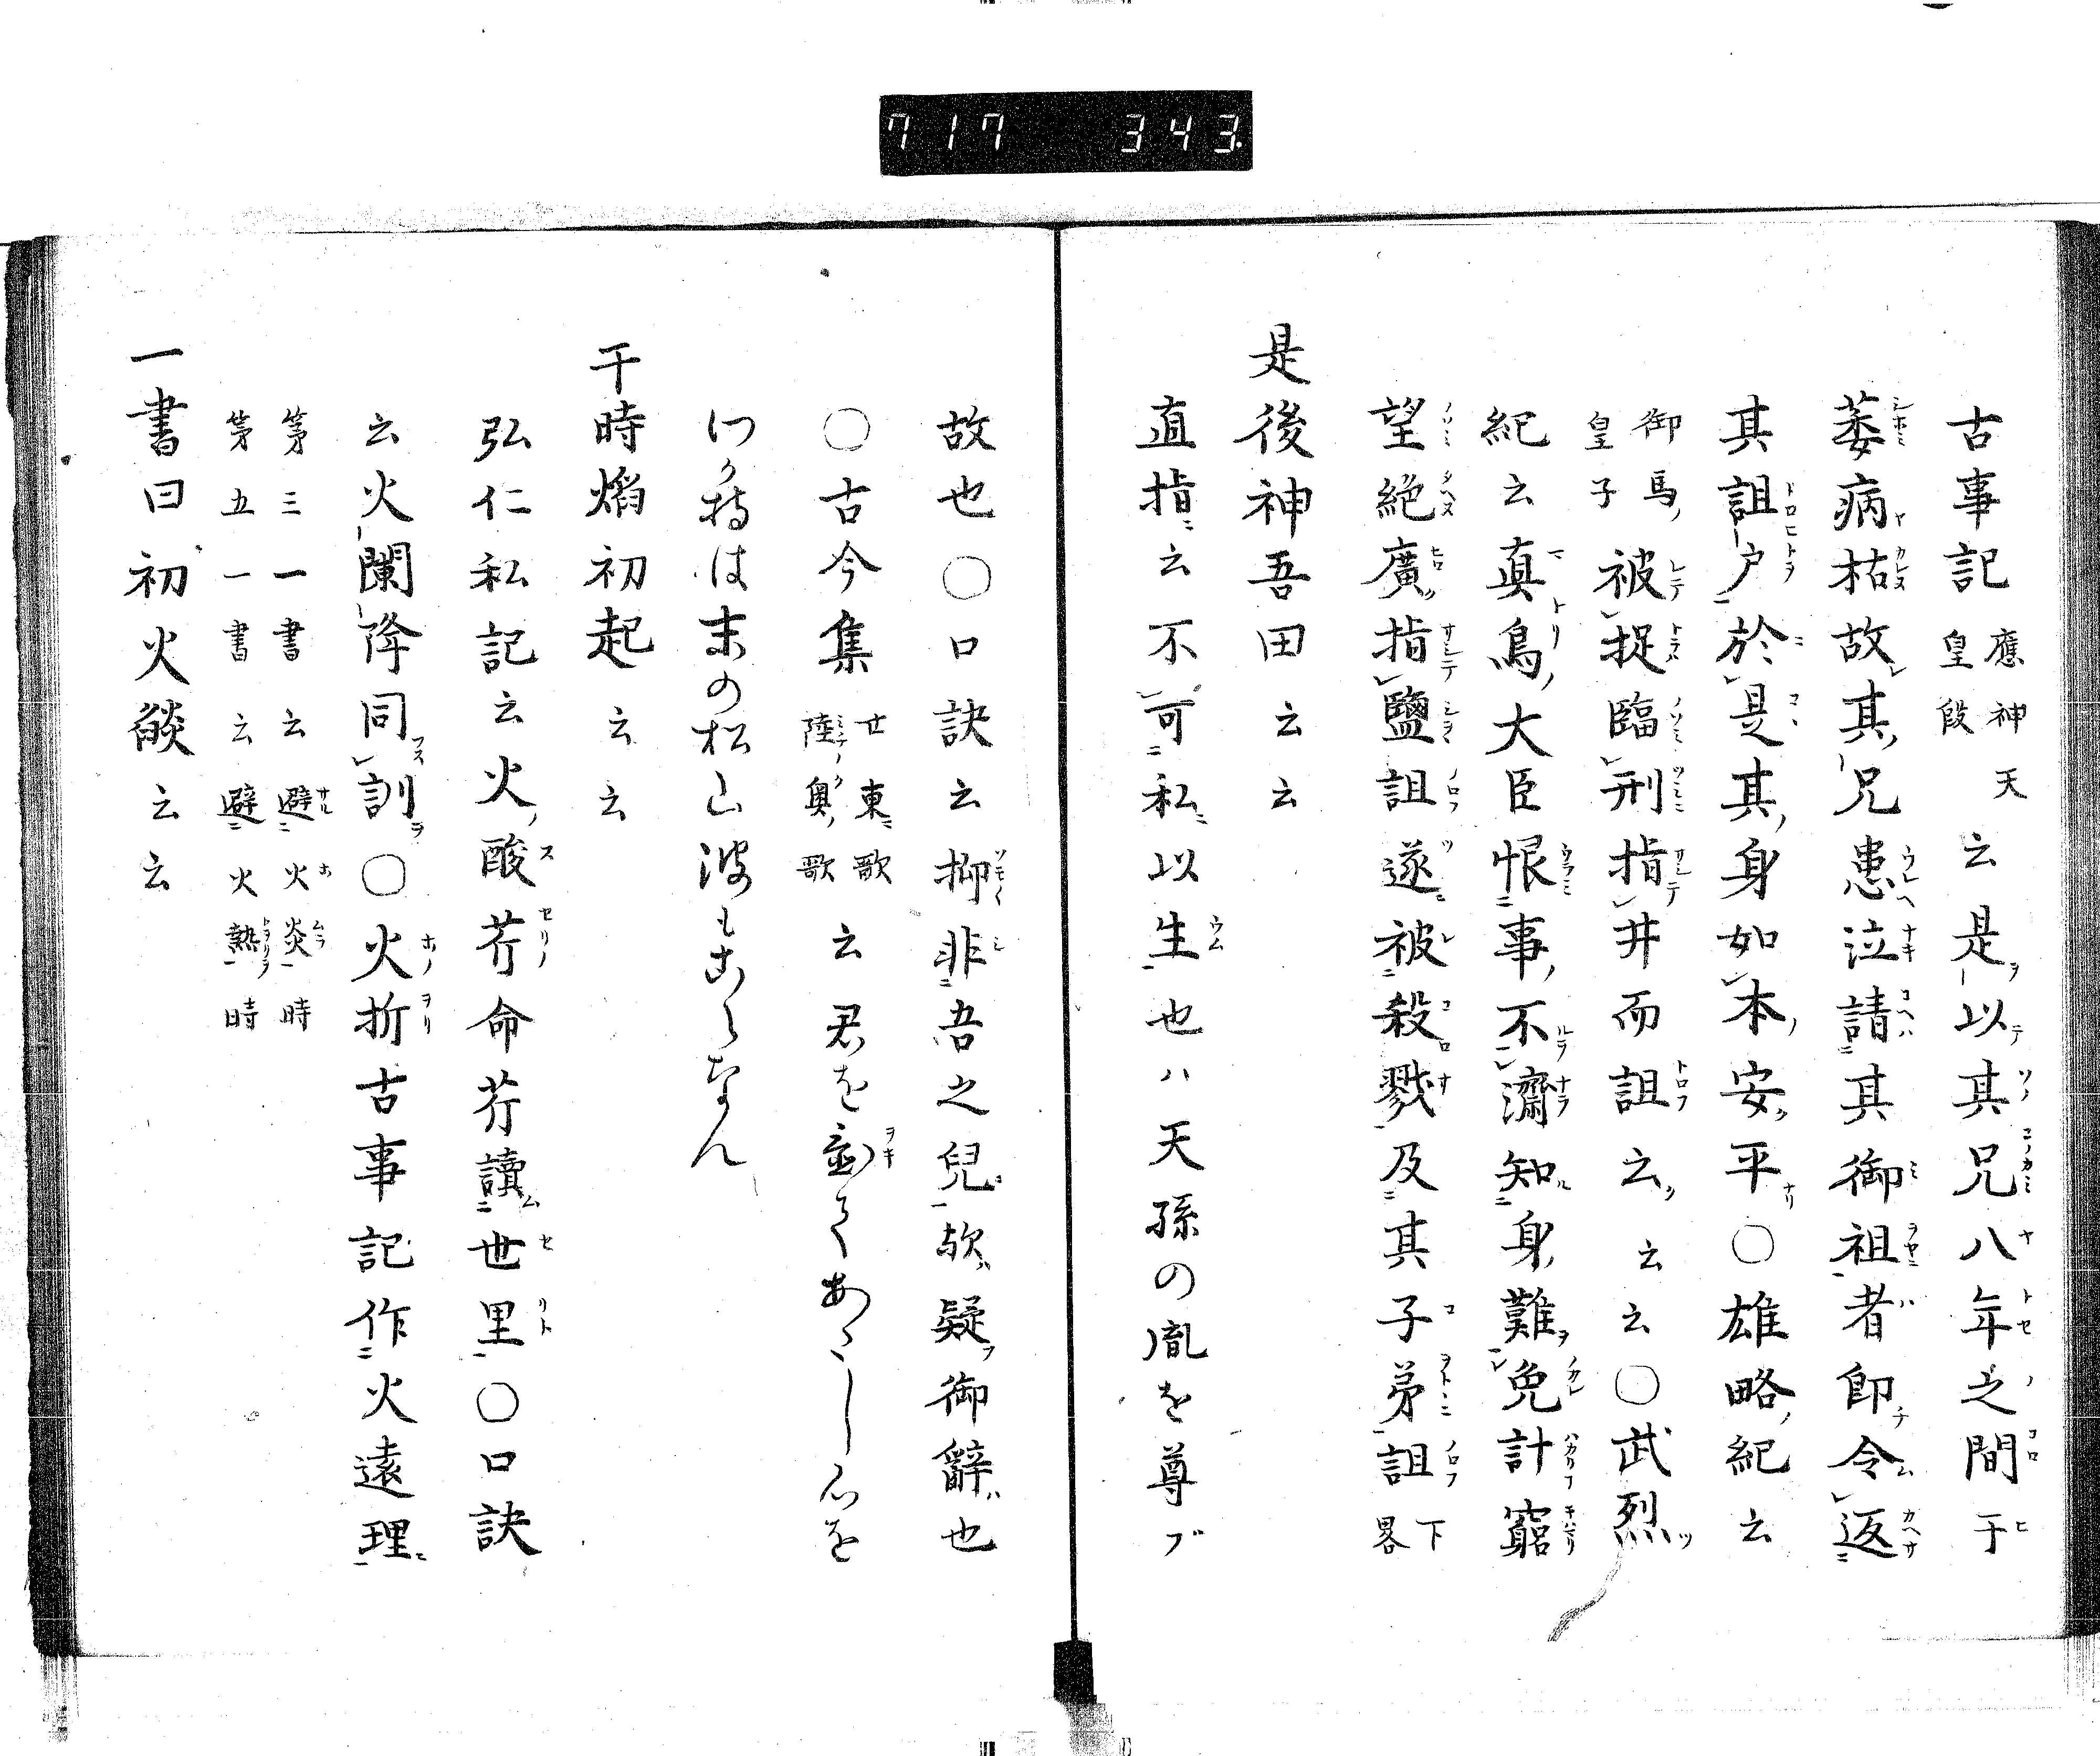 717 343
古事記應神天皇段云是以其兄八年之間于
萎病枯故其兄患泣請其御祖者即令返
其詛戸於是其身如本安平○雄略紀云
御馬皇子被捉臨刑指井而詛云云云○武烈
紀云真鳥大臣恨事不濟知身難免計窮
望絶廣指鹽詛遂被殺戮及其子弟詛下畧
是後神吾田云云
直指云不可私以生也ハ天孫の胤を尊ブ
故也○口訣云抑非吾之兒歟疑御辭也
○古今集廿東歌陸奥歌云君を置てあたし心を
わか待は末の松山波もこえなん
干時焰初起云云
弘仁私記云火酸芹命芹讀世里○口訣
云火闌降同訓○火折古事記作火遠理
第三一書云避火炎時
第五一書云避火熱時
一書曰初火燄云云